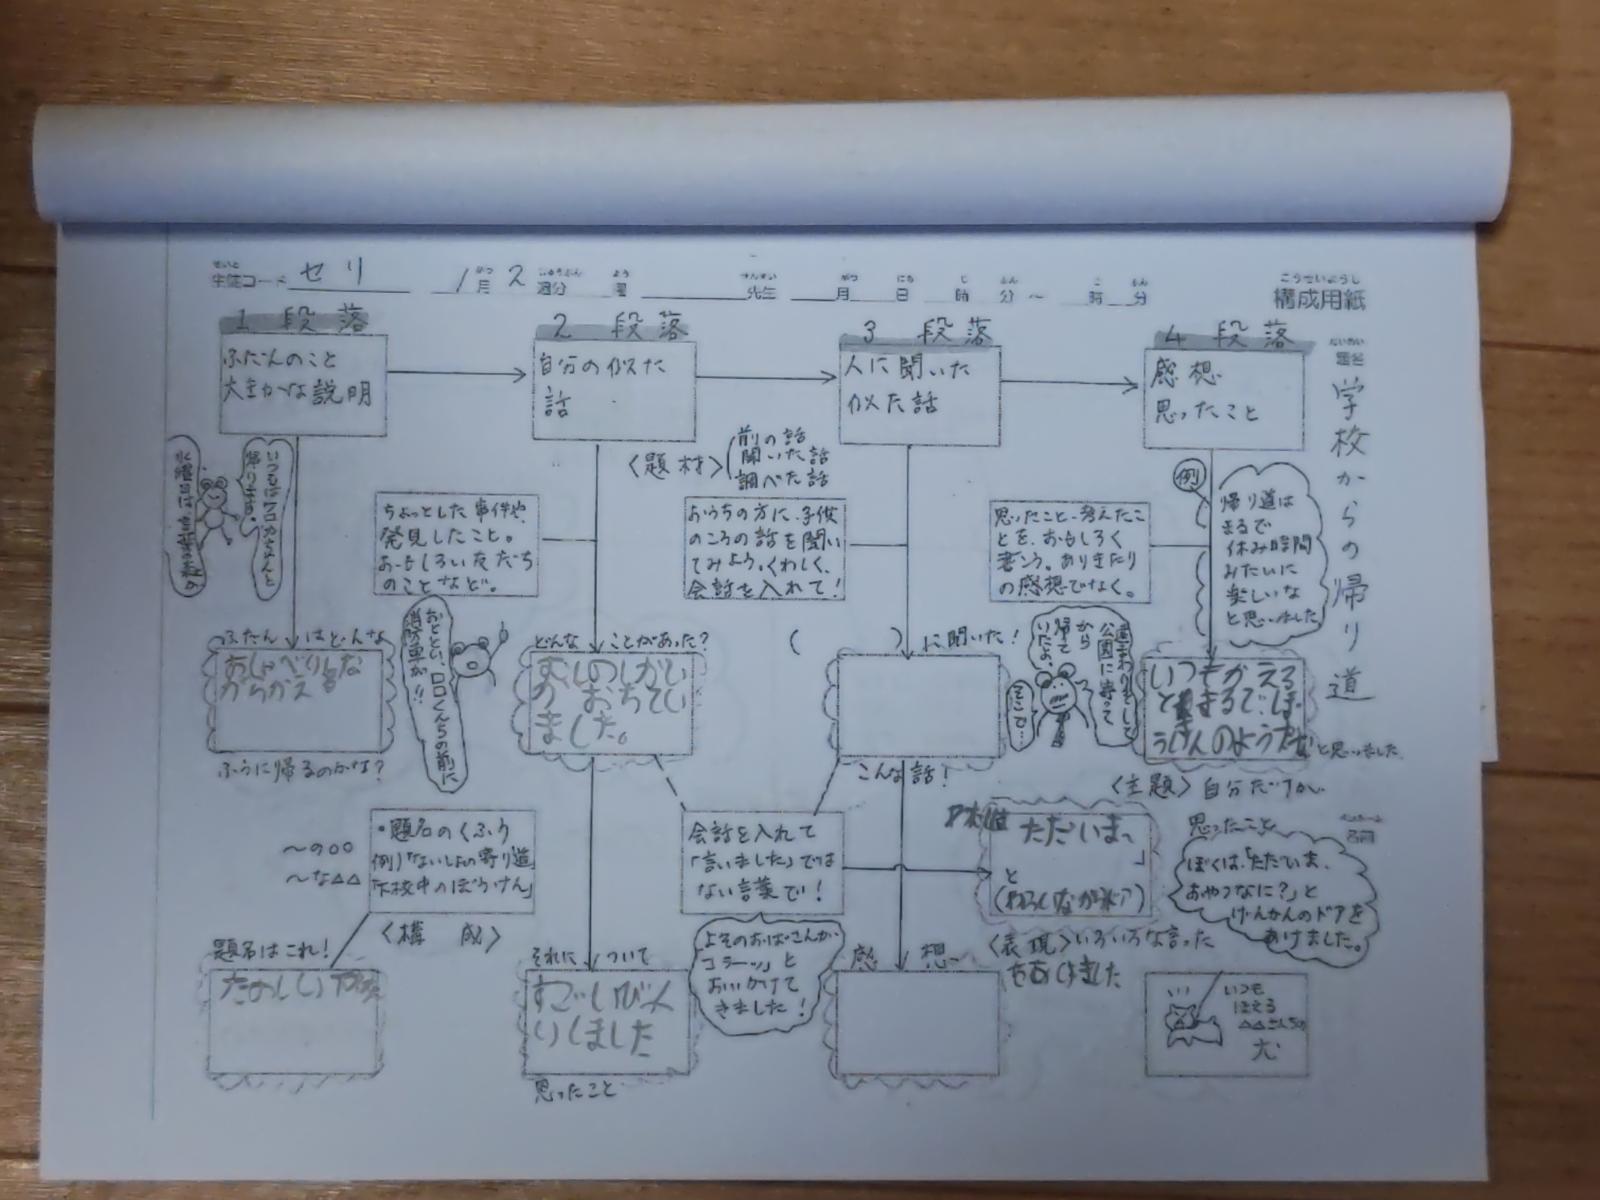 せいと がつ しゅうぶん よう せんせい がつ にち じ ふん じ ふん
生徒コード セリ 1月 2 週分 曜 先生 月 日 時 分 ～ 時 分
こうせいようし
構成用紙
だいめい
題名
学校からの帰り道
1 段落
ふだんのこと
大まかな説明
2 段落
自分の似た
話
3 段落
人に聞いた
似た話
4 段落
感想
思ったこと
いつもは
帰ります。
水曜日は、
〈題材〉
前の話
聞いた話
調べた話
ちょっとした事件や、
発見したこと。
おもしろい友だち
のことなど。
おうちの方に、子供
のころの話を聞い
てみよう。くわしく、
会話を入れて!
思ったこと、考えたこ
とを、おもしろく
書こう。ありきたり
の感想でなく。
例
帰り道は
まるで
休み時間
みたいに
楽しいな
と思いました
ふだん はどんな
おしゃべりしな
がらかえ
ふうに帰るのかな?
おととい、口口くんちの前に
消防車が!!
どんな ことがあった?
むしのしがい
の おちてい
ました。
( )に聞いた!
こんな話!
道まわりをして
公園に寄って
から
帰って
いたよ。
そこで…
いつもかえる
とまるでぼ
うけんのようだな
と思いました
〈主題〉自分だったら
～の○○
～な△△
・題名のくふう
例)「ないしょの寄り道」
「下校中のぼうけん」
〈構 成〉
題名はこれ!
たのしい
それに ついて
すごいびっく
りしました
思ったこと
会話を入れて
「言いました」では
ない言葉で!
よそのおばさんが、
コラーッ」と
おいかけて
きました!
感 想
ただいま、
」
と
〈表現〉いろいろな言った
思ったこと
ぼくは、「ただいま、
おやつなに?」と
げんかんのドアを
あけました。
いつも
ほえる
△△さんちの
犬